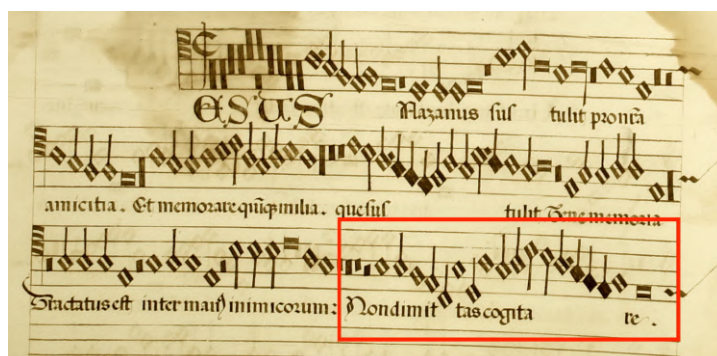 ESUS Nazanus sus tulit pron̄a
amicitia. Et memorare quiq̨ milia. quesus tulit memoria
Tractatus est inter man⁹ inimicorum: Non dimit tas cogita re.